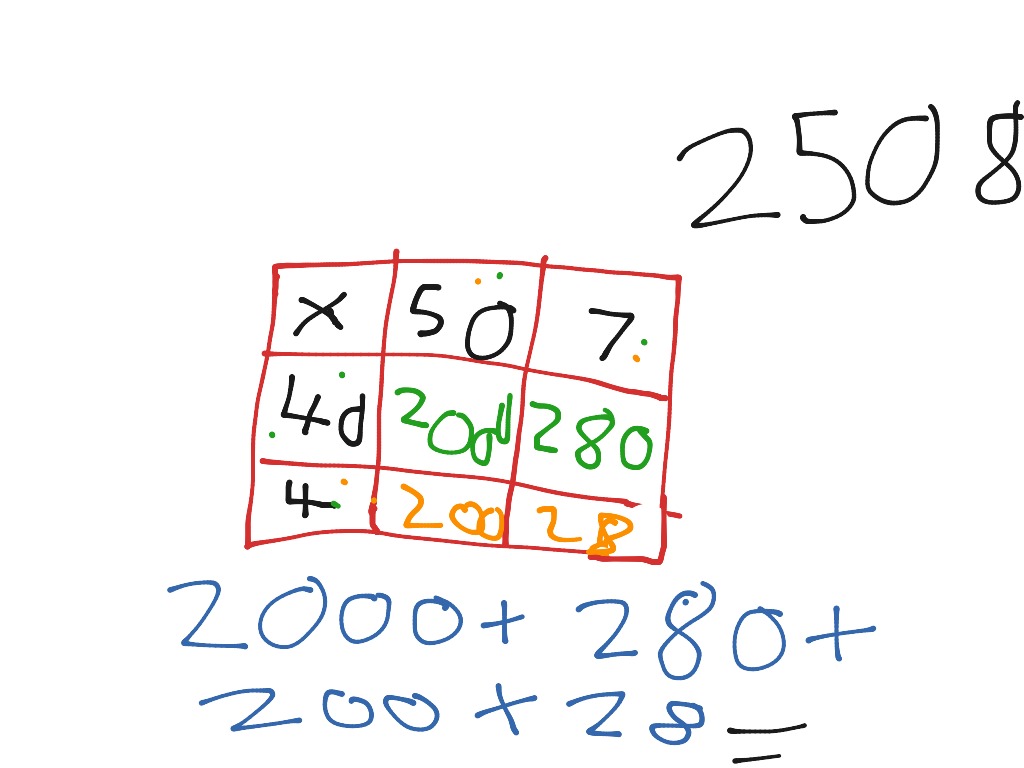 2508
× 50 7
40 2000 280
4 200 28
2000 + 280 +
200 + 28 =